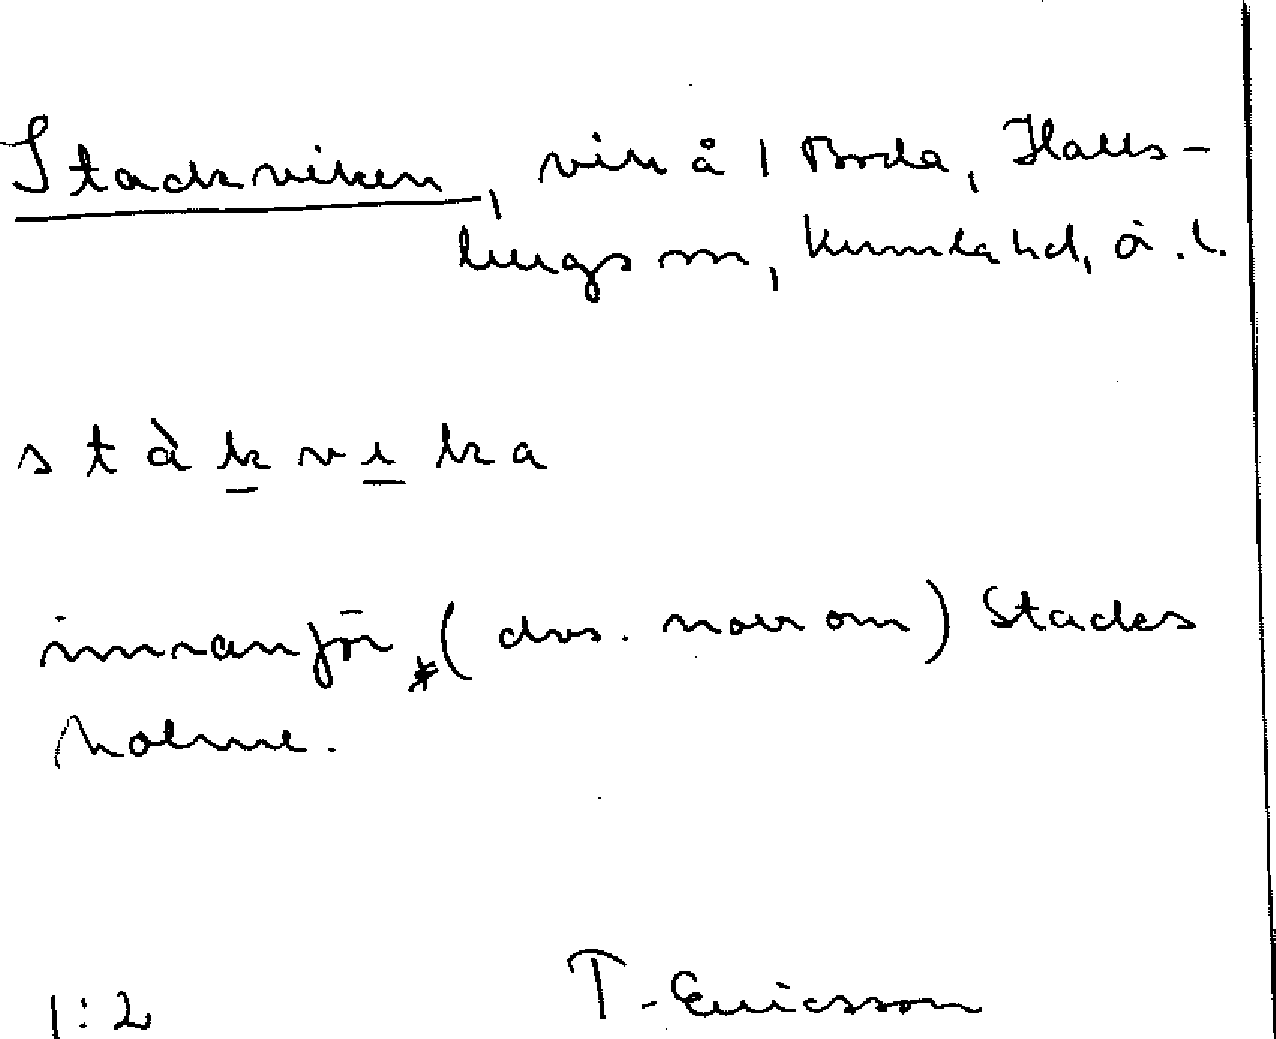 Stackviken, vik å 1 Boda, Halls-
bergs sn, Kumla hd, ö.l.
s t à k v i k a
innanför *(dvs. norr om) Stacks
holme.
1:2 T. Ericsson